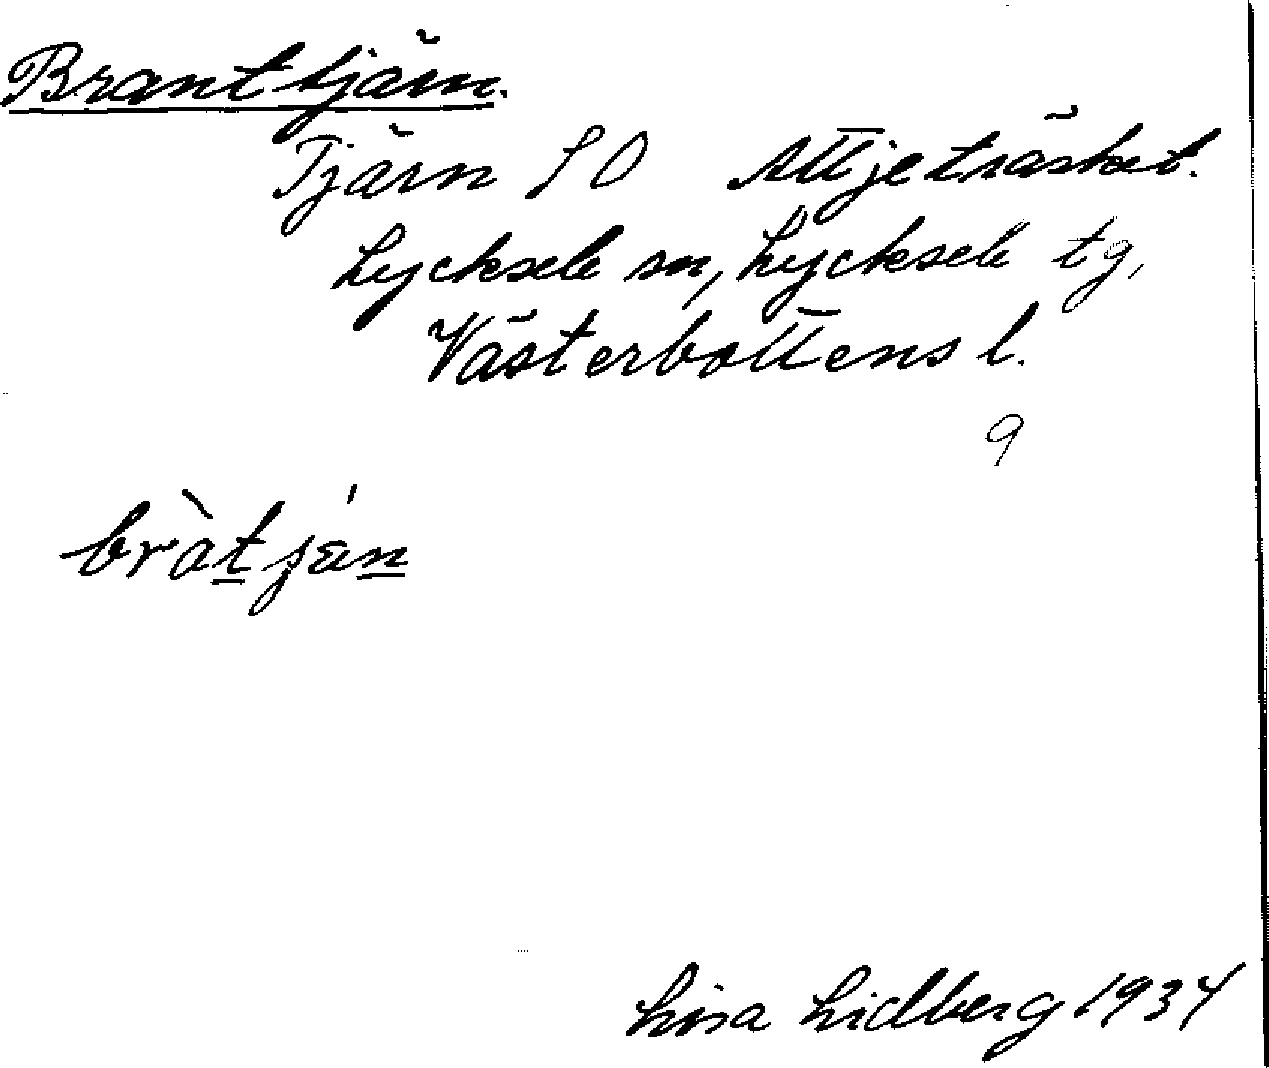 Branttjärn.
Tjärn SO Attjeträsket.
Lycksele sn, Lycksele tg,
Västerbottens l.
9
bràt̲ jän̲
Lisa Lidberg 1934